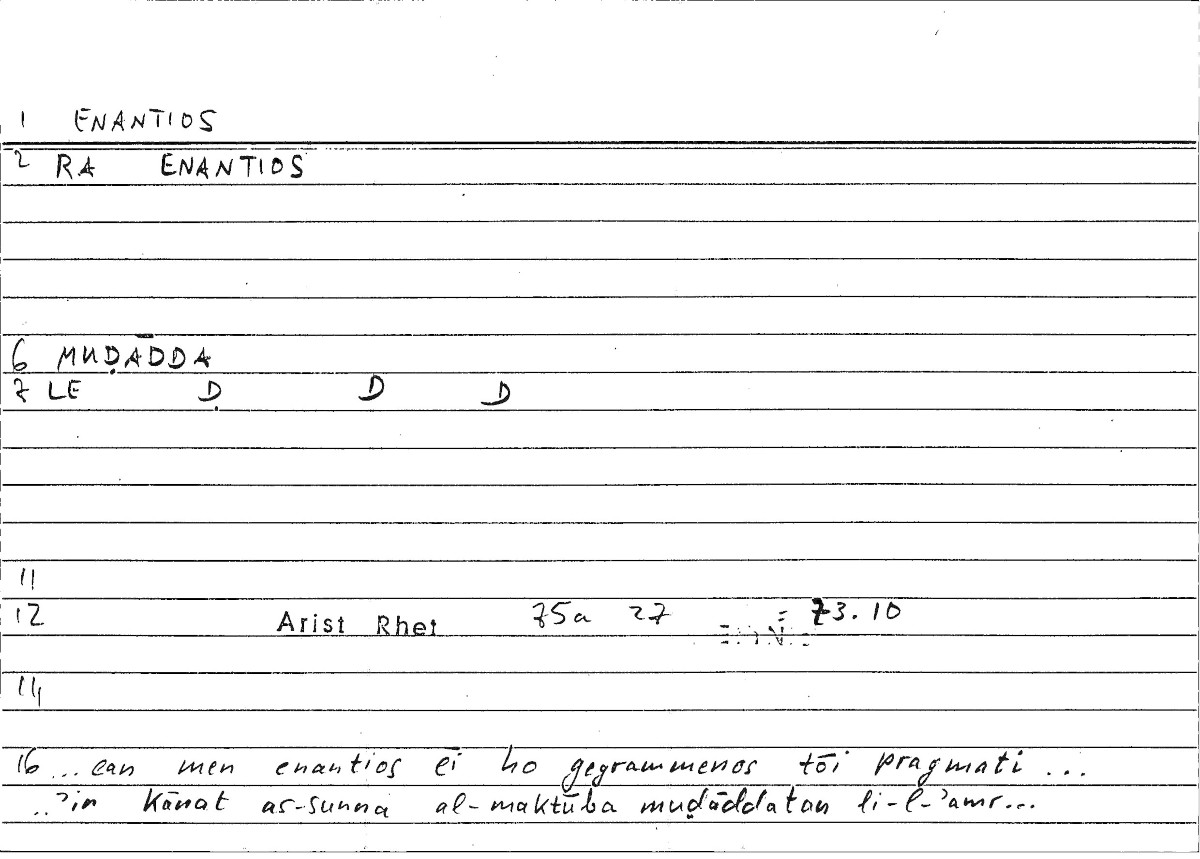 1 ENANTIOS
2 RA ENANTIOS
6 MUḌĀDDA
7 LE Ḍ D D
11
12 Arist Rhet 75a 27 73.10
14
16 ...ean men enantios ēi ho gegrammenos tōi pragmati ...
...ʾin kānat as-sunna al-maktūba muḍāddatan li-l-ʾamr...